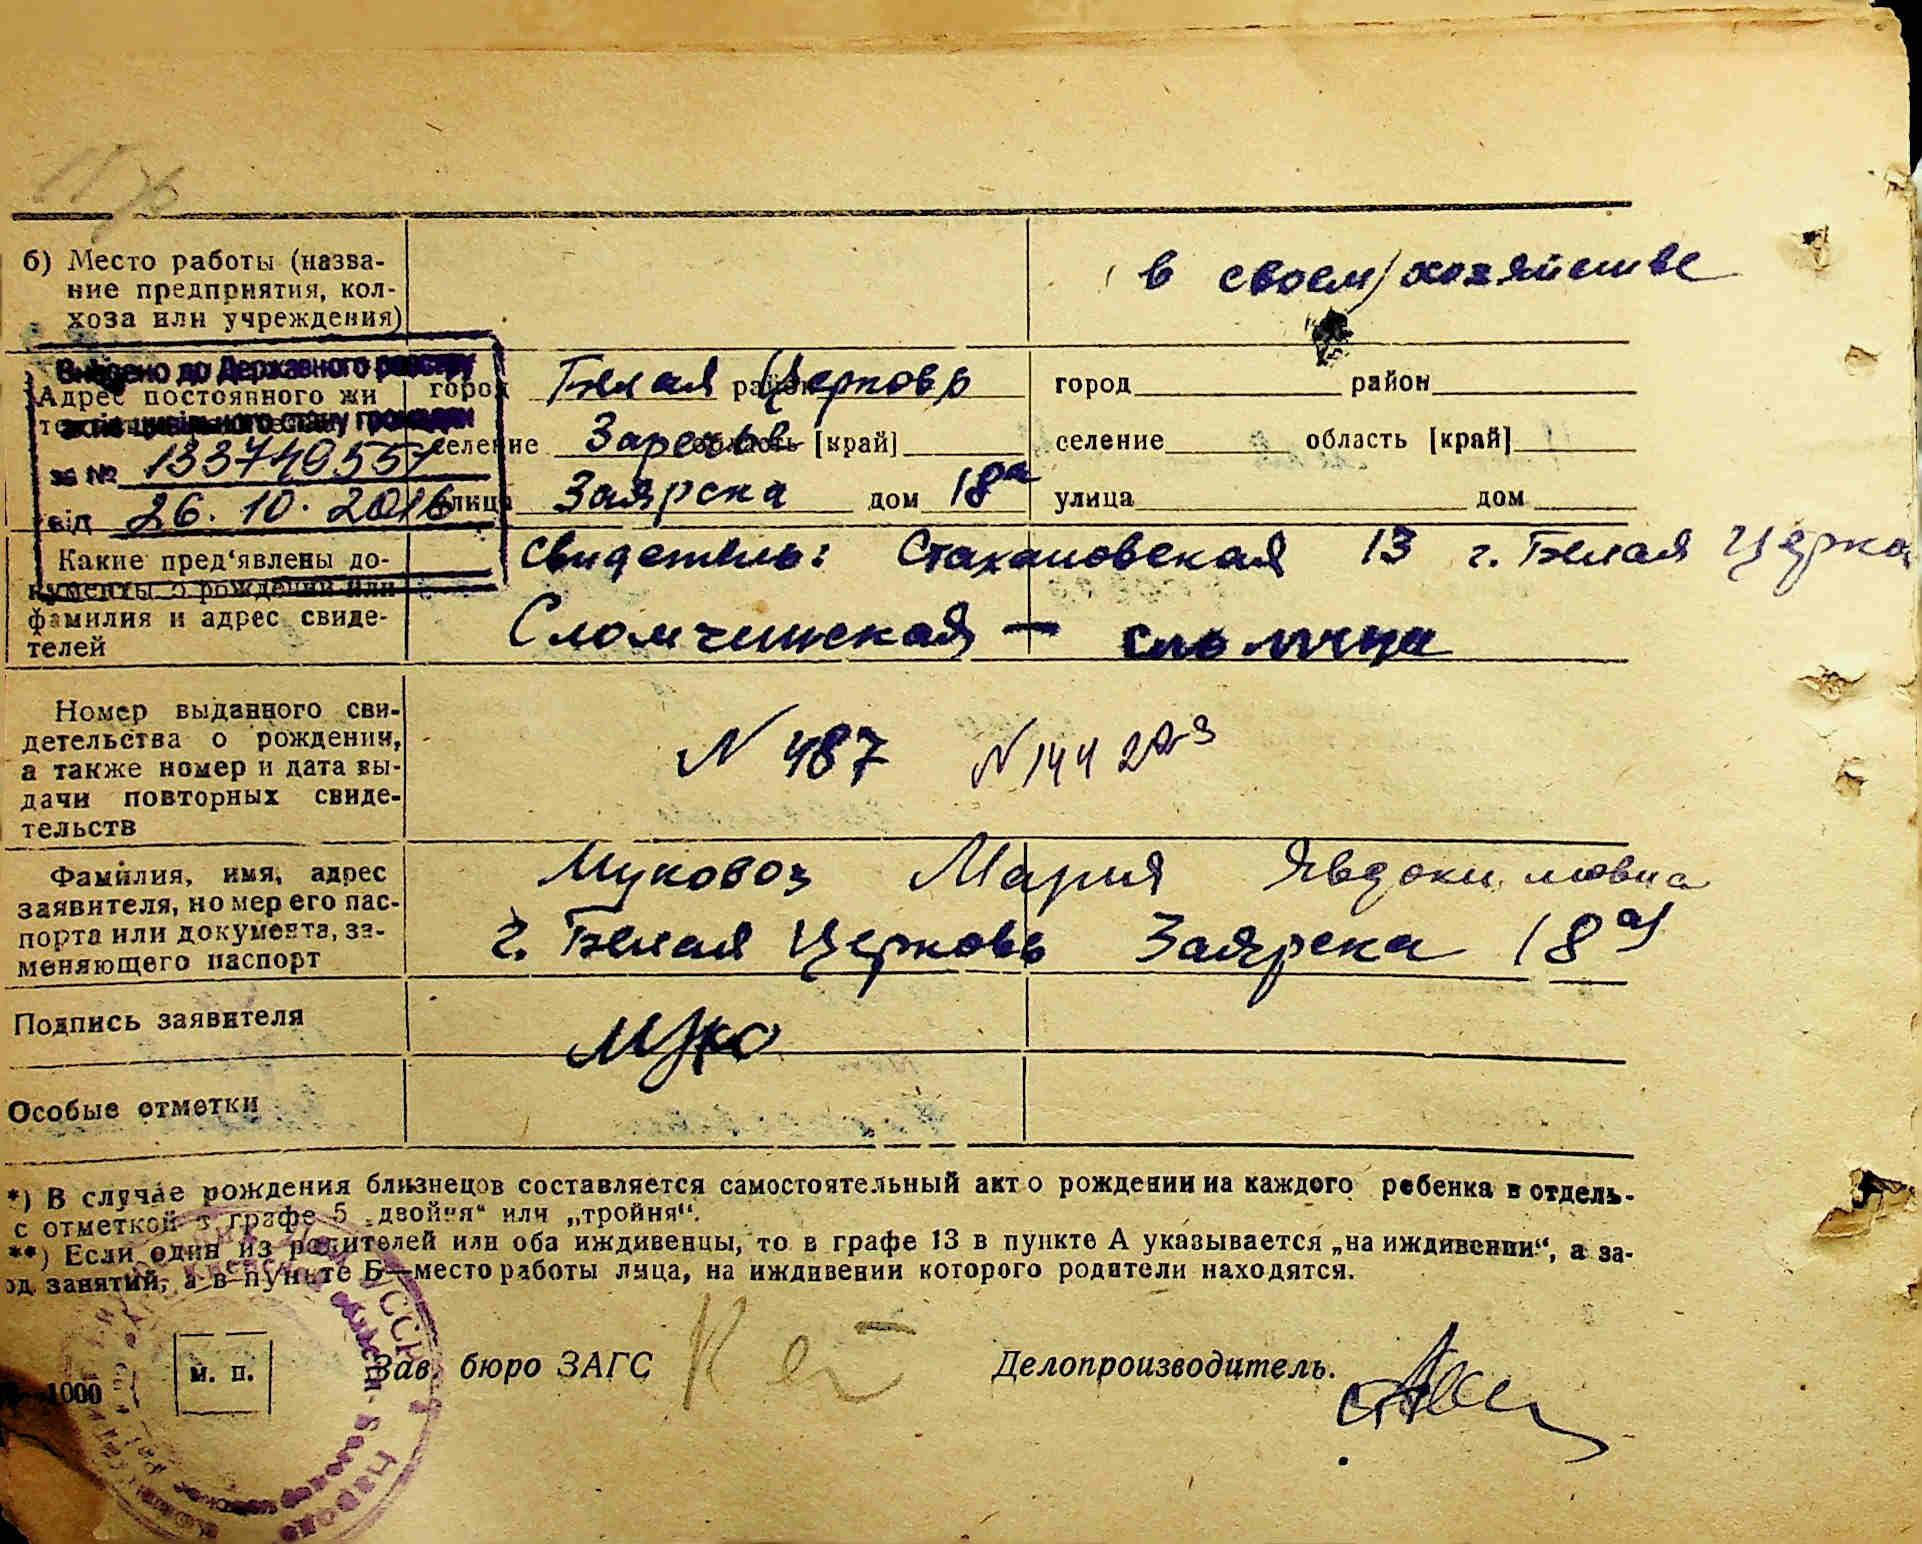 б) Место работы (назва-
ние предприятия, кол-
хоза или учреждения)
в своем хозяйстве
Внесено до Державного реєстру
актів цивільного стану громадян
за № 133740557
від 26. 10. 2016
Адрес постоянного жи
город Белая Церковь район
селение область [край]
улица Заярска дом 18а
город район
селение область [край]
улица дом
Какие пред‘явлены до-
кументы о рождении или
фамилия и адрес свиде-
телей
Свидетель: Стахановская 13 г. Белая Церко
Сломчинская —
Номер выданного сви-
детельства о рождении,
а также номер и дата вы-
дачи повторных свиде-
тельств
N 487 N 144
Фамилия, имя, адрес
заявителя, номер его пас-
порта или документа, за-
меняющего паспорт
Муковоз Мария Явдокимовна
г. Белая Церковь Заярска 18а
Подпись заявителя
Муко
Особые отметки
*) В случае рождения близнецов составляется самостоятельный акт о рождении на каждого ребенка в отдель-
с отметкой в графе 5 „двойня“ или „тройня“.
**) Если один из родителей или оба иждивенцы, то в графе 13 в пункте А указывается „на иждивении“, а за-
од занятий, а в пункте Б—место работы лица, на иждивении которого родители находятся.
м. п.
Зав. бюро ЗАГС
Делопроизводитель.
1000